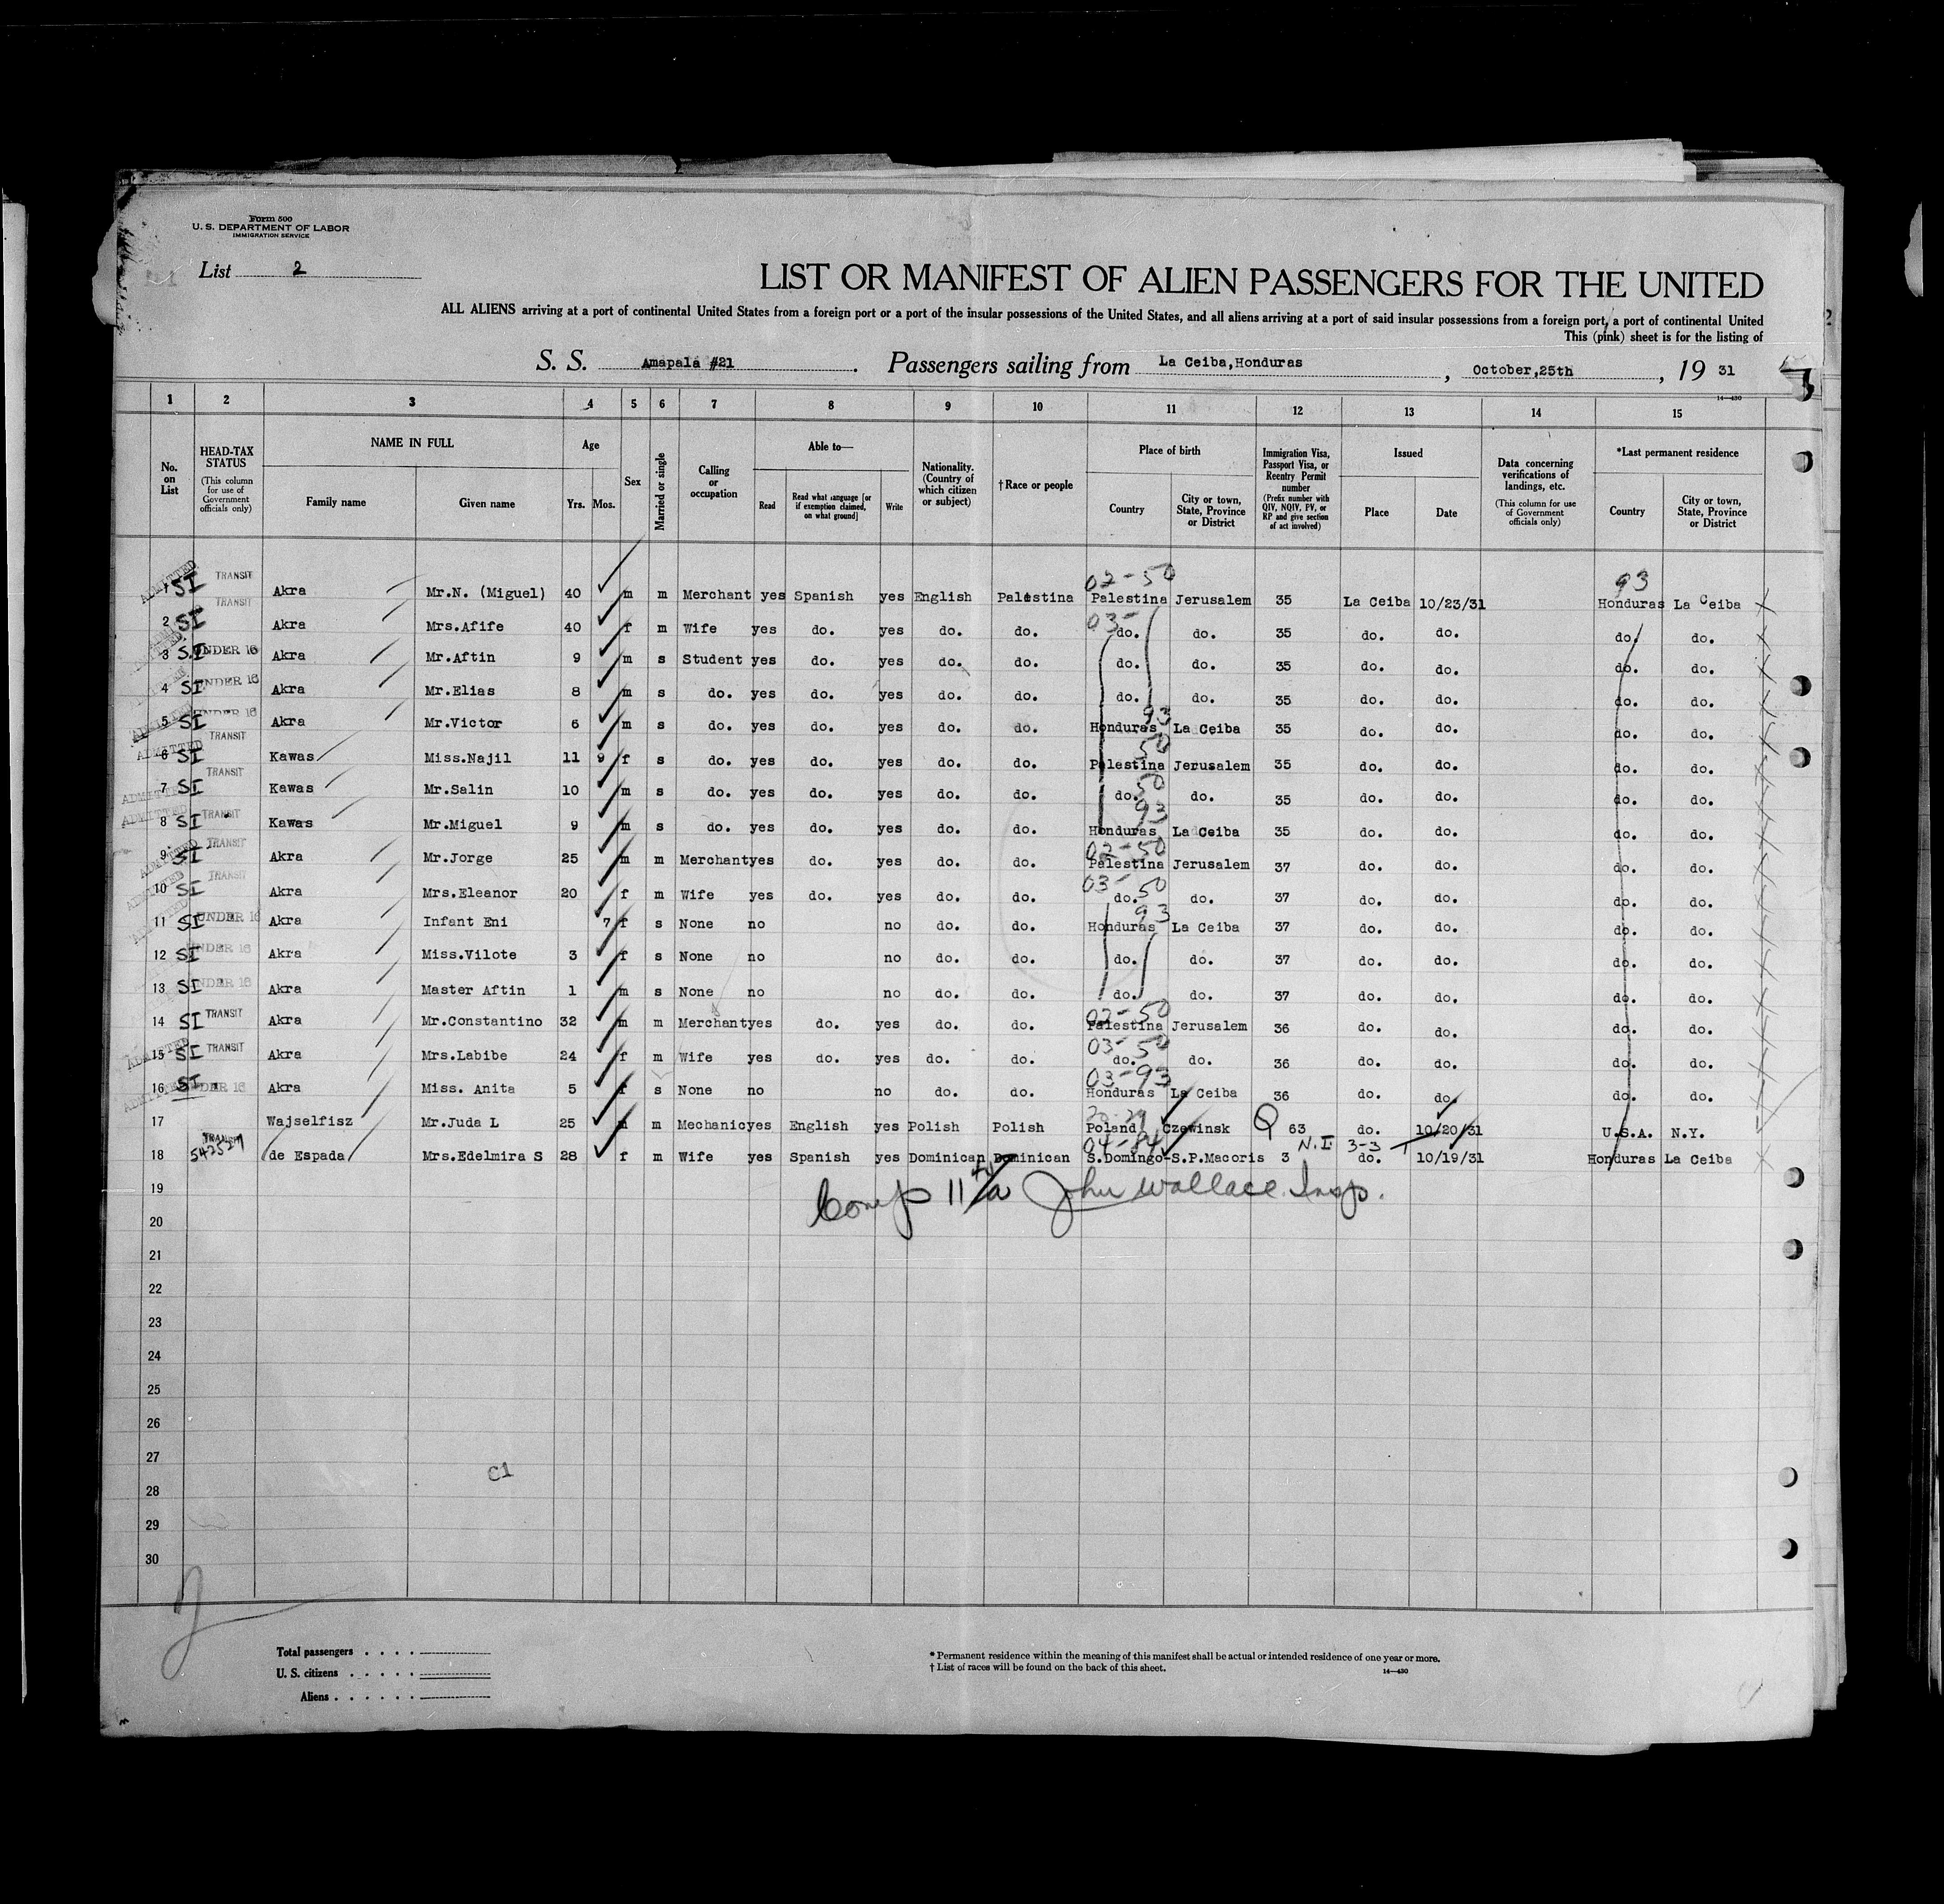 Form 500
U. S. DEPARTMENT OF LABOR
IMMIGRATION SERVICE
List 2
LIST OR MANIFEST OF ALIEN PASSENGERS FOR THE UNITED
ALL ALIENS arriving at a port of continental United States from a foreign port or a port of the insular possessions of the United States, and all aliens arriving at a port of said insular possessions from a foreign port, a port of continental United
This (pink) sheet is for the listing of
S. S. Amapala #21. Passengers sailing from La Ceiba,Honduras, October,25th, 19 31
14—430
1 2 3 4 5 6 7 8 9 10 11 12 13 14 15
No. on List
HEAD-TAX STATUS (This column for use of Government officials only)
NAME IN FULL Family name Given name
Age Yrs. Mos.
Sex
Married or single
Calling or occupation
Able to— Read Read what language [or if exemption claimed, on what ground] Write
Nationality. (Country of which citizen or subject)
† Race or people
Place of birth Country City or town, State, Province or District
Immigration Visa, Passport Visa, or Reentry Permit number (Prefix number with QIV, NQIV, PV, or RP and give section of act involved)
Issued Place Date
Data concerning verifications of landings, etc. (This column for use of Government officials only)
*Last permanent residence Country City or town, State, Province or District
02-50 93
ADMITTED 1 SI TRANSIT Akra Mr.N. (Miguel) 40 m m Merchant yes Spanish yes English Palestina Palestina Jerusalem 35 La Ceiba 10/23/31 Honduras La Ceiba
2 SI TRANSIT Akra Mrs.Afife 40 f m Wife yes do. yes do. do. 03- do. do. 35 do. do. do. do.
3 SI UNDER 16 Akra Mr.Aftin 9 m s Student yes do. yes do. do. do. do. 35 do. do. do. do.
4 SI UNDER 16 Akra Mr.Elias 8 m s do. yes do. yes do. do. do. do. 35 do. do. do. do.
5 SI UNDER 16 Akra Mr.Victor 6 m s do. yes do. yes do. do. 93 Honduras La Ceiba 35 do. do. do. do.
ADMITTED 6 SI TRANSIT Kawas Miss.Najil 11 9 f s do. yes do. yes do. do. 50 Palestina Jerusalem 35 do. do. do. do.
ADMITTED 7 SI TRANSIT Kawas Mr.Salin 10 m s do. yes do. yes do. do. 50 do. do. 35 do. do. do. do.
ADMITTED 8 SI TRANSIT Kawas Mr.Miguel 9 m s do. yes do. yes do. do. 93 Honduras La Ceiba 35 do. do. do. do.
ADMITTED 9 SI TRANSIT Akra Mr.Jorge 25 m m Merchant yes do. yes do. do. 02-50 Palestina Jerusalem 37 do. do. do. do.
ADMITTED 10 SI TRANSIT Akra Mrs.Eleanor 20 f m Wife yes do. yes do. do. 03-50 do. do. 37 do. do. do. do.
11 SI UNDER 16 Akra Infant Eni 7 f s None no no do. do. 93 Honduras La Ceiba 37 do. do. do. do.
12 SI UNDER 16 Akra Miss.Vilote 3 f s None no no do. do. do. do. 37 do. do. do. do.
13 SI UNDER 16 Akra Master Aftin 1 m s None no no do. do. do. do. 37 do. do. do. do.
14 SI TRANSIT Akra Mr.Constantino 32 m m Merchant yes do. yes do. do. 02-50 Palestina Jerusalem 36 do. do. do. do.
ADMITTED 15 SI TRANSIT Akra Mrs.Labibe 24 f m Wife yes do. yes do. do. 03-50 do. do. 36 do. do. do. do.
ADMITTED 16 SI UNDER 16 Akra Miss. Anita 5 f s None no no do. do. 03-93 Honduras La Ceiba 36 do. do. do. do.
17 Wajselfisz Mr.Juda L 25 m m Mechanic yes English yes Polish Polish Poland Czewinsk Q 63 do. 10/20/31 U.S.A. N.Y.
18 TRANSIT 542527 de Espada Mrs.Edelmira S 28 f m Wife yes Spanish yes Dominican Dominican 04-84 S.Domingo-S.P.Macoris 3 N.I 3-3 do. 10/19/31 Honduras La Ceiba
19 Comp 11 John Wallace Insp.
20
21
22
23
24
25
26
27 C1
28
29
30
Total passengers
U. S. citizens
Aliens
* Permanent residence within the meaning of this manifest shall be actual or intended residence of one year or more.
† List of races will be found on the back of this sheet. 14—430